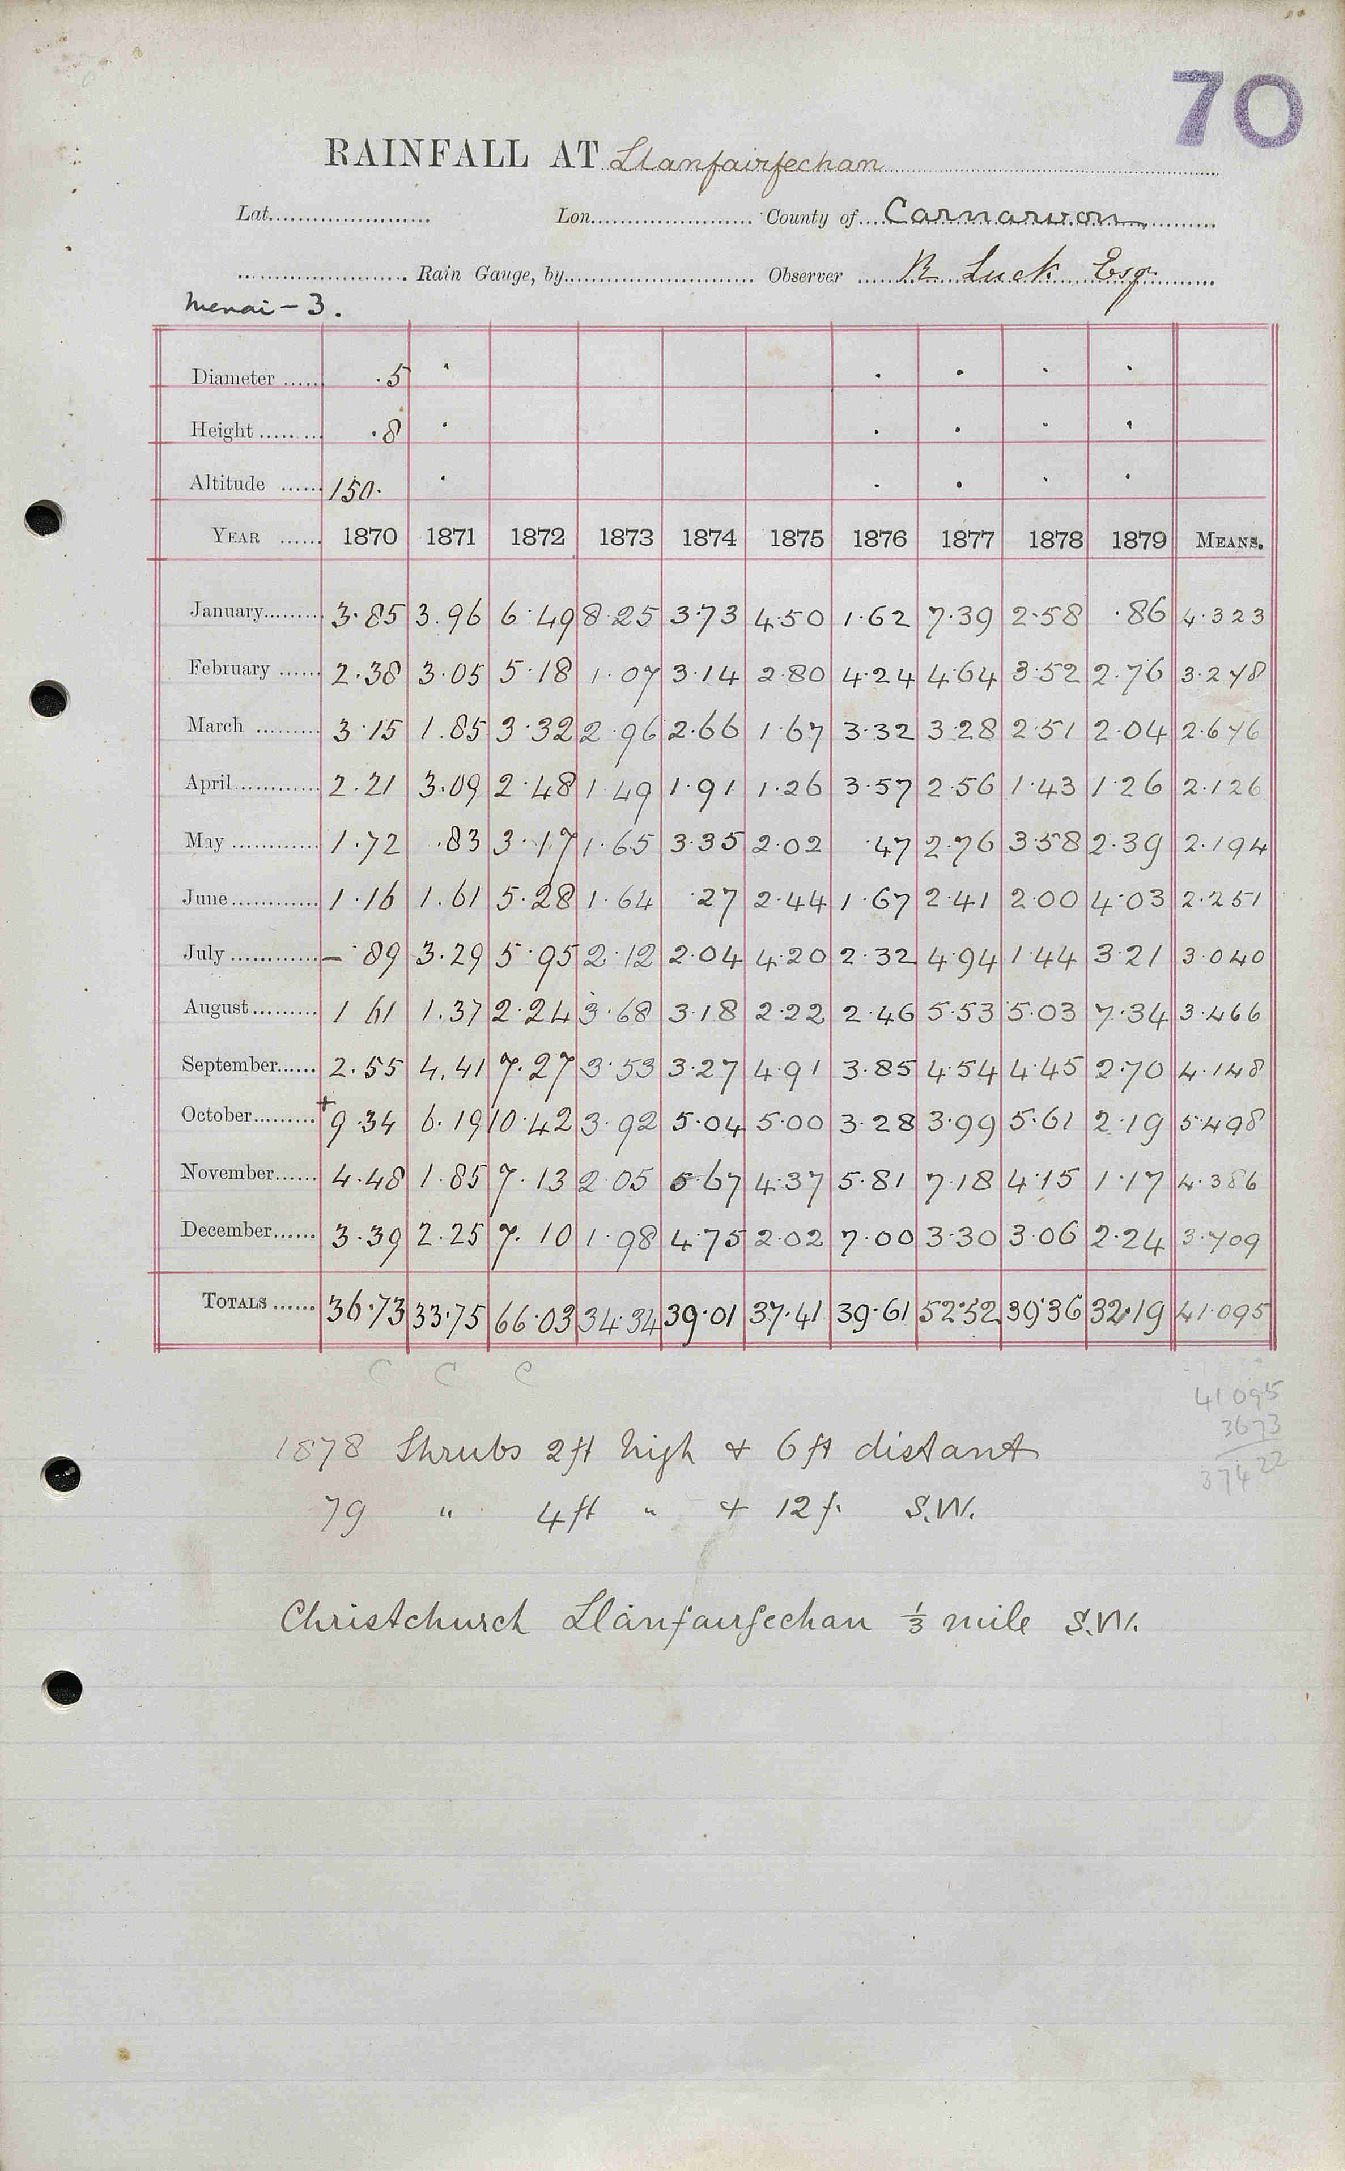 70
RAINFALL AT Llanfairfechan
Lat. Lon. County of Carnarvon
Rain Gauge, by Observer R Luck Esq.
Menai - 3.
Diameter .5
Height .8
Altitude 150.
YEAR 1870 1871 1872 1873 1874 1875 1876 1877 1878 1879 MEANS.
January 3.85 3.96 6.49 8.25 3.73 4.50 1.62 7.39 2.58 .86 4.323
February 2.38 3.05 5.18 1.07 3.14 2.80 4.24 4.64 3.52 2.76 3.278
March 3.15 1.85 3.32 2.96 2.66 1.67 3.32 3.28 2.51 2.04 2.676
April 2.21 3.09 2.48 1.49 1.91 1.26 3.57 2.56 1.43 1.26 2.126
May 1.72 .83 3.17 1.65 3.35 2.02 .47 2.76 3.58 2.39 2.194
June 1.16 1.61 5.28 1.64 .27 2.44 1.67 2.41 2.00 4.03 2.251
July – .89 3.29 5.95 2.12 2.04 4.20 2.32 4.94 1.44 3.21 3.040
August 1 61 1.37 2.24 3.68 3.18 2.22 2.46 5.53 5.03 7.34 3.466
September 2.55 4.41 7.27 3.53 3.27 4.91 3.85 4.54 4.45 2.70 4.148
October + 9.34 6.19 10.42 3.92 5.04 5.00 3.28 3.99 5.61 2.19 5.498
November 4.48 1.85 7.13 2.05 5.67 4.37 5.81 7.18 4.15 1.17 4.386
December 3.39 2.25 7.10 1.98 4.75 2.02 7.00 3.30 3.06 2.24 3.709
TOTALS 36.73 33.75 66.03 34.34 39.01 37.41 39.61 52.52 39.36 32.19 41.095
C C C
41 095
3673
37422
1878 Shrubs 2ft high & 6 ft distant
79 " 4 ft " & 12 f. S.W.
Christchurch Llanfairfechan 1/3 mile S.W.